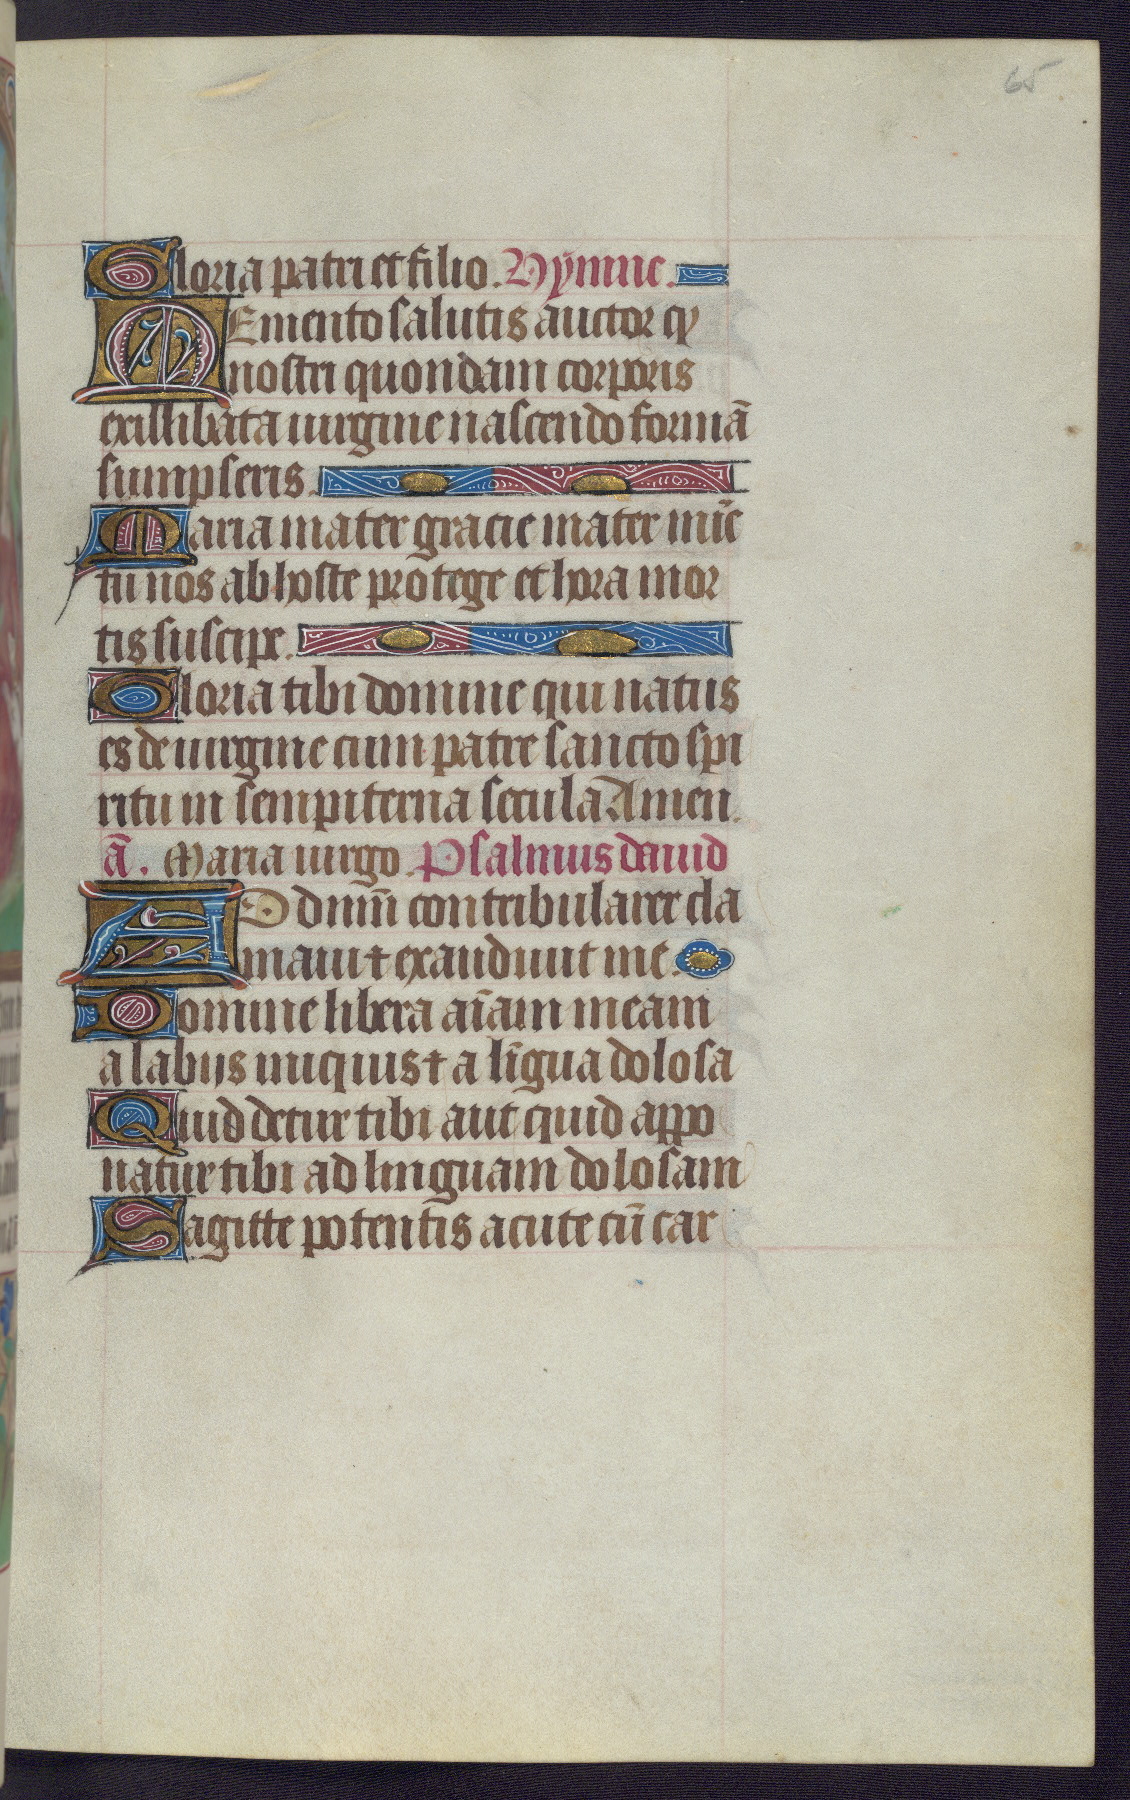 65
Gloria patri et filio. Hÿmne.
MEmento salutis auctor qȝ
nostri quondam corporis
exillibata uirgine nascendo formā
sumpseris.
Maria mater gracie mater mīe
tu nos ab hoste protege et hora mor
tis suscipe.
Gloria tibi domine qui natus
es de uirgine cum patre sancto spi
ritu in sempiterna secula Amen.
ā. Maria uirgo. Psalmus dauid
AD dnm̄ contribularer cla
maui ⁊ exaudiuit me.
Domine libera aīam meam
a labijs iniquis ⁊ a lingua dolosa
Quid detur tibi aut quid appo
natur tibi ad linguam dolosam
Sagitte potentis acute cū car